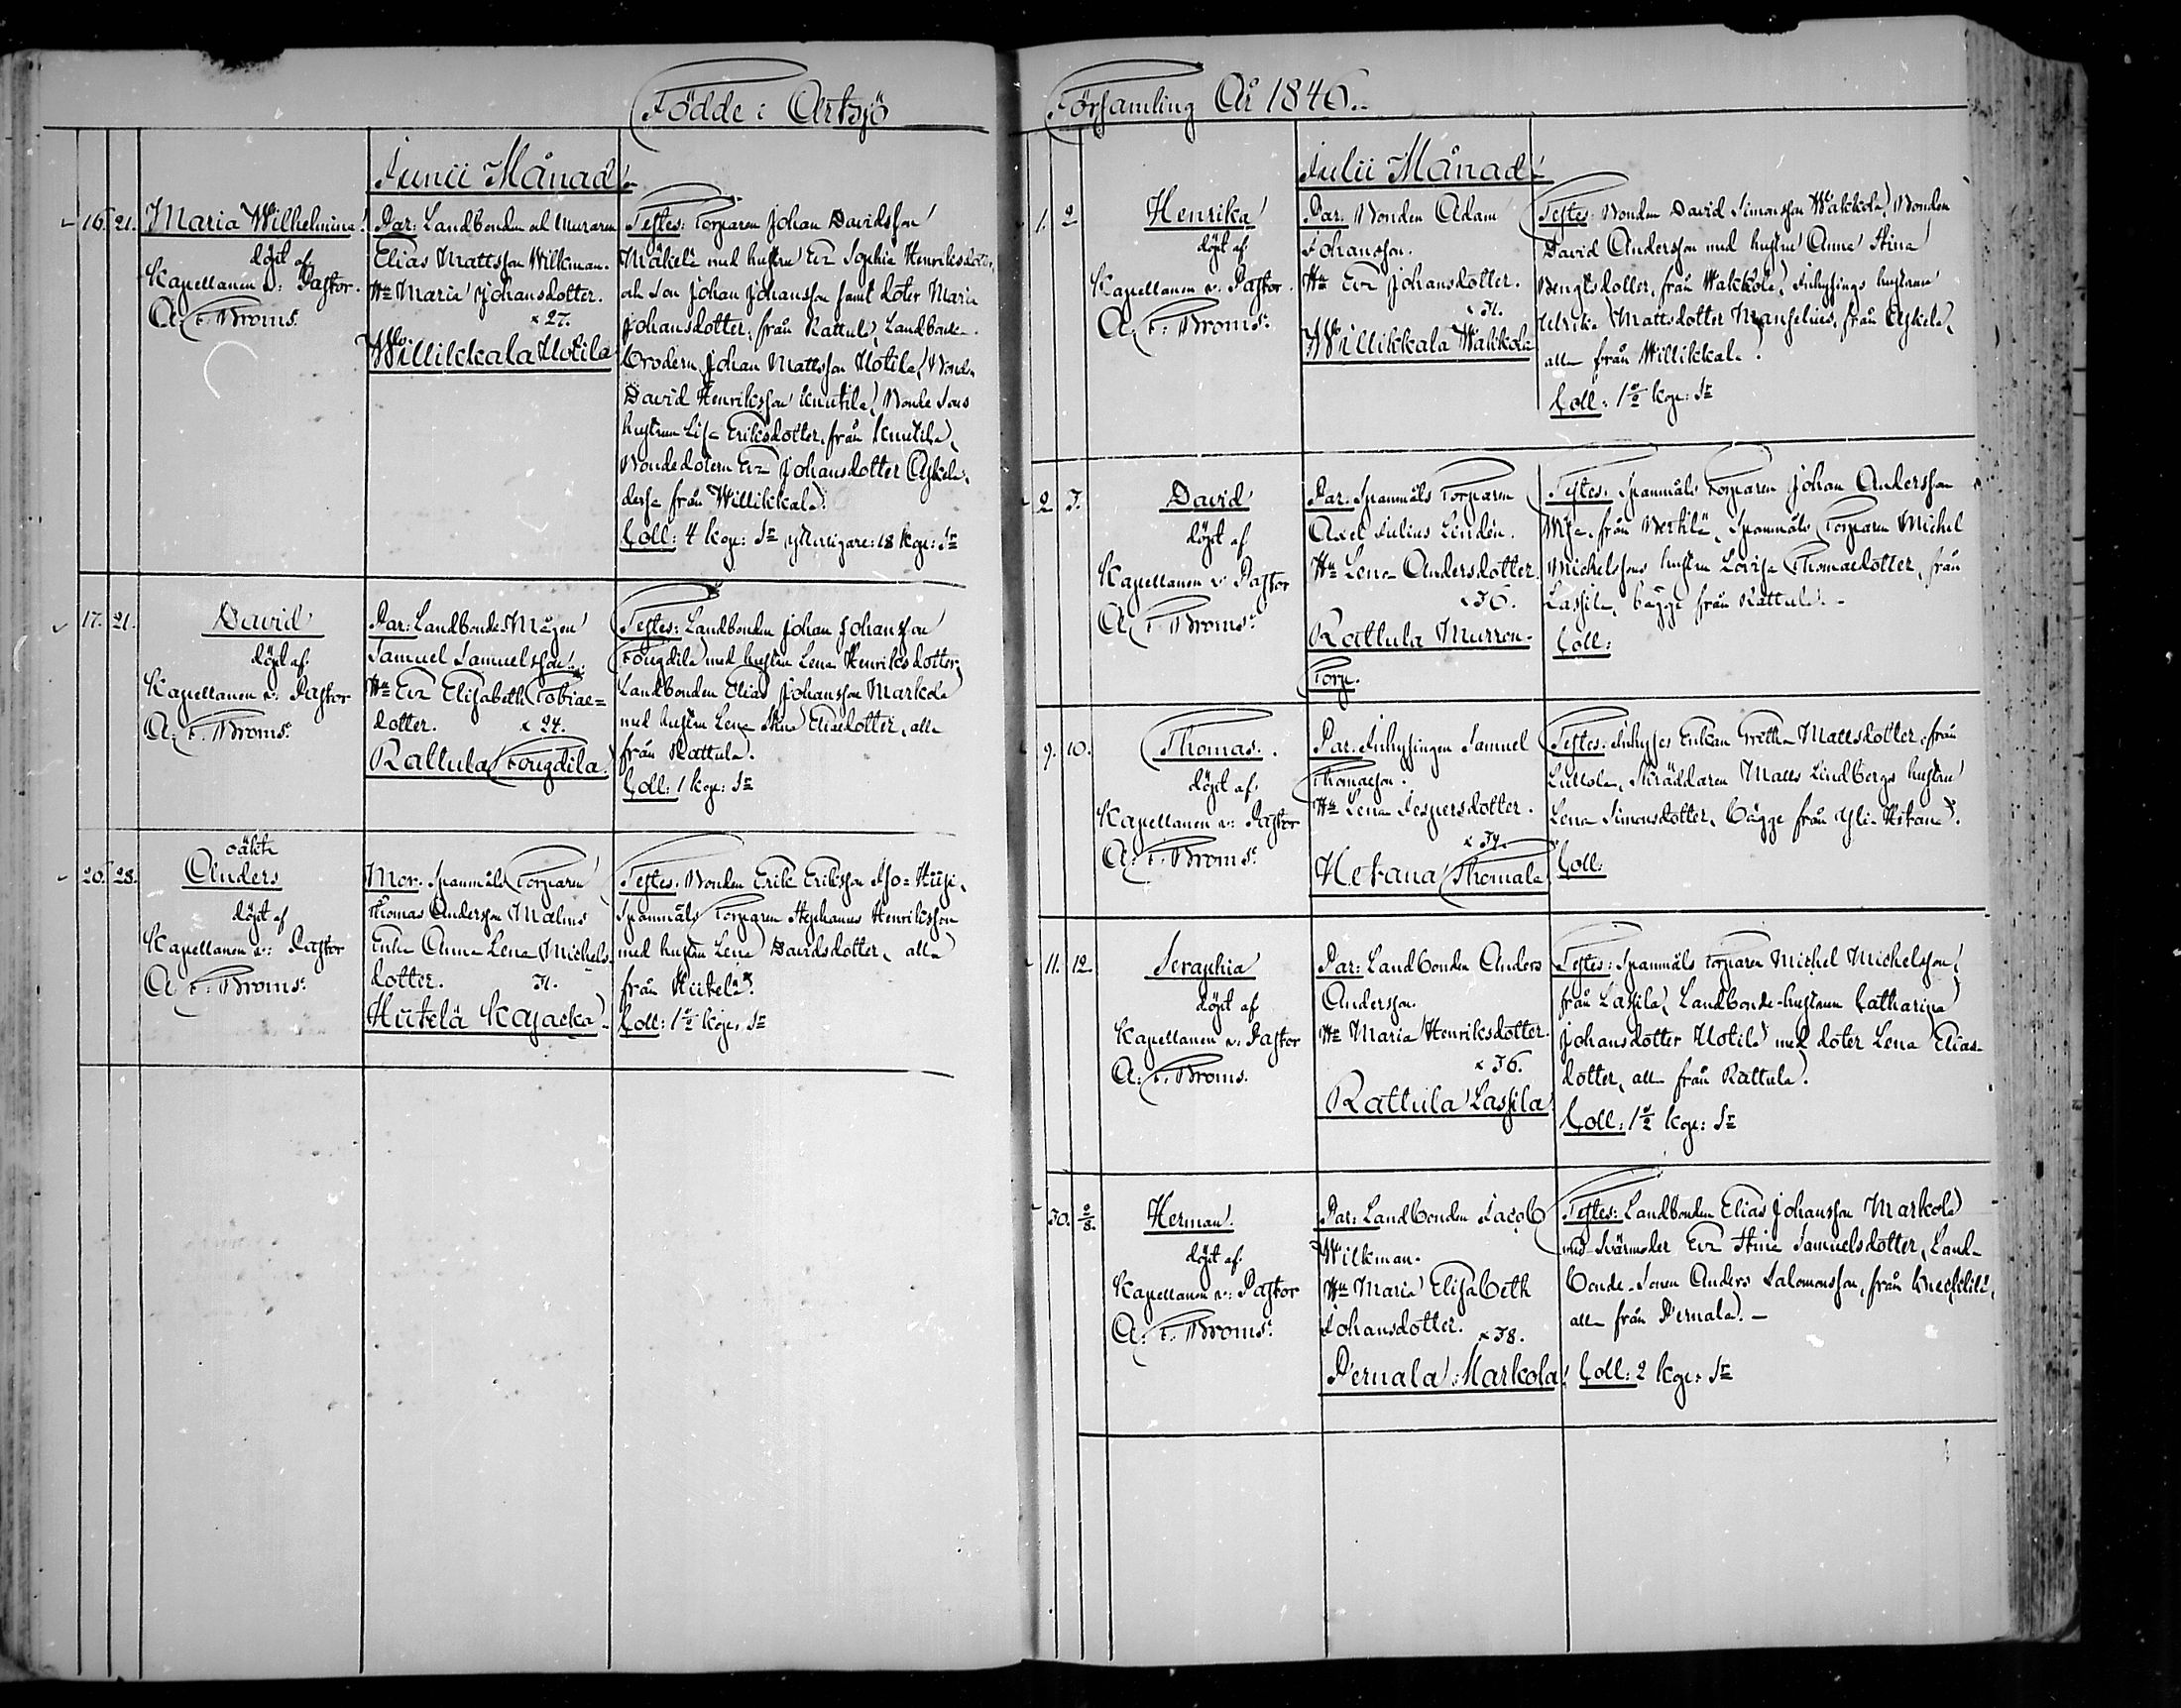 Födde i Artsjö
Junii Månad
16. 21. Maria Wilhelmina
döpt af
Kapellanen v: Pastor
A: F. Broms.
Par: Landbonden och Muraren
Elias Mattsson Wilkman.
Hu Maria Johansdotter.
x 27.
Willikkala Uotila
Testes: Torparen Johan Davidsson
Mäkelä med hustru Eva Sophia Henriksdotter,
och Son Johan Johansson samt doter Maria
Johansdotter, från Rattula, Landbonde-
brodern Johan Mattsson Uotila, Bonden
David Henriksson Knutila, Bonde Sons
hustrun Lisa Eriksdotter, från Knutila,
Bondedotern Eva Johansdotter Askela,
dessa från Willikkala.
Coll: 4 kop: Sr
17. 21. David
döpt af
Kapellanen v: Pastor
A: F. Broms.
Par: Landbonde Mågen
Samuel Samuelsson.
Hu Eva Elisabeth Tobiae=
dotter. x 24.
Rattula Fougdila.
Testes: Landbonden Johan Johansson
Fougdila med hustru Lena Henriksdotter,
Landbonden Elias Johansson Markola
med hustru Lena Stina Eliaedotter, alla
från Rattula.
Coll: 1 kop: Sr
oäkta
26. 28. Anders
döpt af
Kapellanen v: Pastor
A: F. Broms.
Mor. Spanmåls Torparen
Thomas Andersson Malms
Enka Anna Lena Michels-
dotter. 31.
Hiitelä Kajacka
Testes. Bonden Erik Eriksson Iso=Hiisi,
Spanmåls Torparen Stephanus Henriksson
med hustru Lena Davidsdotter, alla
från Hiitelä.
Coll: 1½ kop: Sr
Församling År 1846.
Julii Månad
1. 2. Henrika
döpt af
Kapellanen v: Pastor
A: F. Broms.
Par. Bonden Adam
Johansson.
Hu Eva Johansdotter.
x 31.
Willikkala Wakkola
Testes: Bonden David Simonsson Wakkola, Bonden
David Andersson med hustru Anna Stina
Bengtsdotter, från Wakkola, Inhysings hustrun
Ulrika Mattsdotter från Askela,
alla från Willikkala.
Coll: 1½ kop: Sr
2. 3. David
döpt af
Kapellanen v: Pastor
A: F. Broms.
Par. Spanmåls Torparen
Axel Julius Lindén.
Hu Lena Andersdotter.
x 36.
Rattula Murron-
Torp.
Testes. Spanmåls Torparen Johan Andersson
från Bertilä, Spanmåls Torparen Michel
Michelssons hustru Lovisa Thomaedotter, från
Lassila, bägge från Rattula.
Coll:
9. 10. Thomas.
döpt af
Kapellanen v: Pastor
A: F. Broms.
Par. Inhysingen Samuel
Thomasson.
Hu Lena Jespersdotter.
x 34.
Hetana Thomala
Testes. Inhyses Enkan Greta Mattsdotter, från
Skräddaren Matts Lindbergs hustru
Lena Simonsdotter, bägge från
Coll:
11. 12. Seraphia
döpt af
Kapellanen v: Pastor
A: F. Broms.
Par: Landbonden Anders
Andersson.
Hu Maria Henriksdotter.
x 36.
Rattula Lassila
Testes: Spanmåls Torparen Michel Michelsson,
från Lassila, Landbonde-hustrun Catharina
Johansdotter Uotila med doter Lena Elias-
dotter, alla från Rattula.
Coll: 1½ kop: Sr
30. 2/8. Herman.
döpt af
Kapellanen v: Pastor
A: F. Broms.
Par: Landbonden Jacob
Wilkman.
Hu Maria Elisabeth
Johansdotter. x 38.
Pernala Markola
Testes: Landbonden Elias Johansson Markola
med Svärmoder Eva Stina Samuelsdotter, Land-
bonde-Sonen Anders Salomonsson, från
alla från Pernala.
Coll: 2 kop: Sr